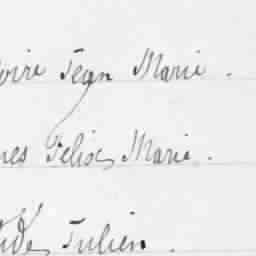 oire Jean Marie .
nes Felix Marie .
ude Julien .